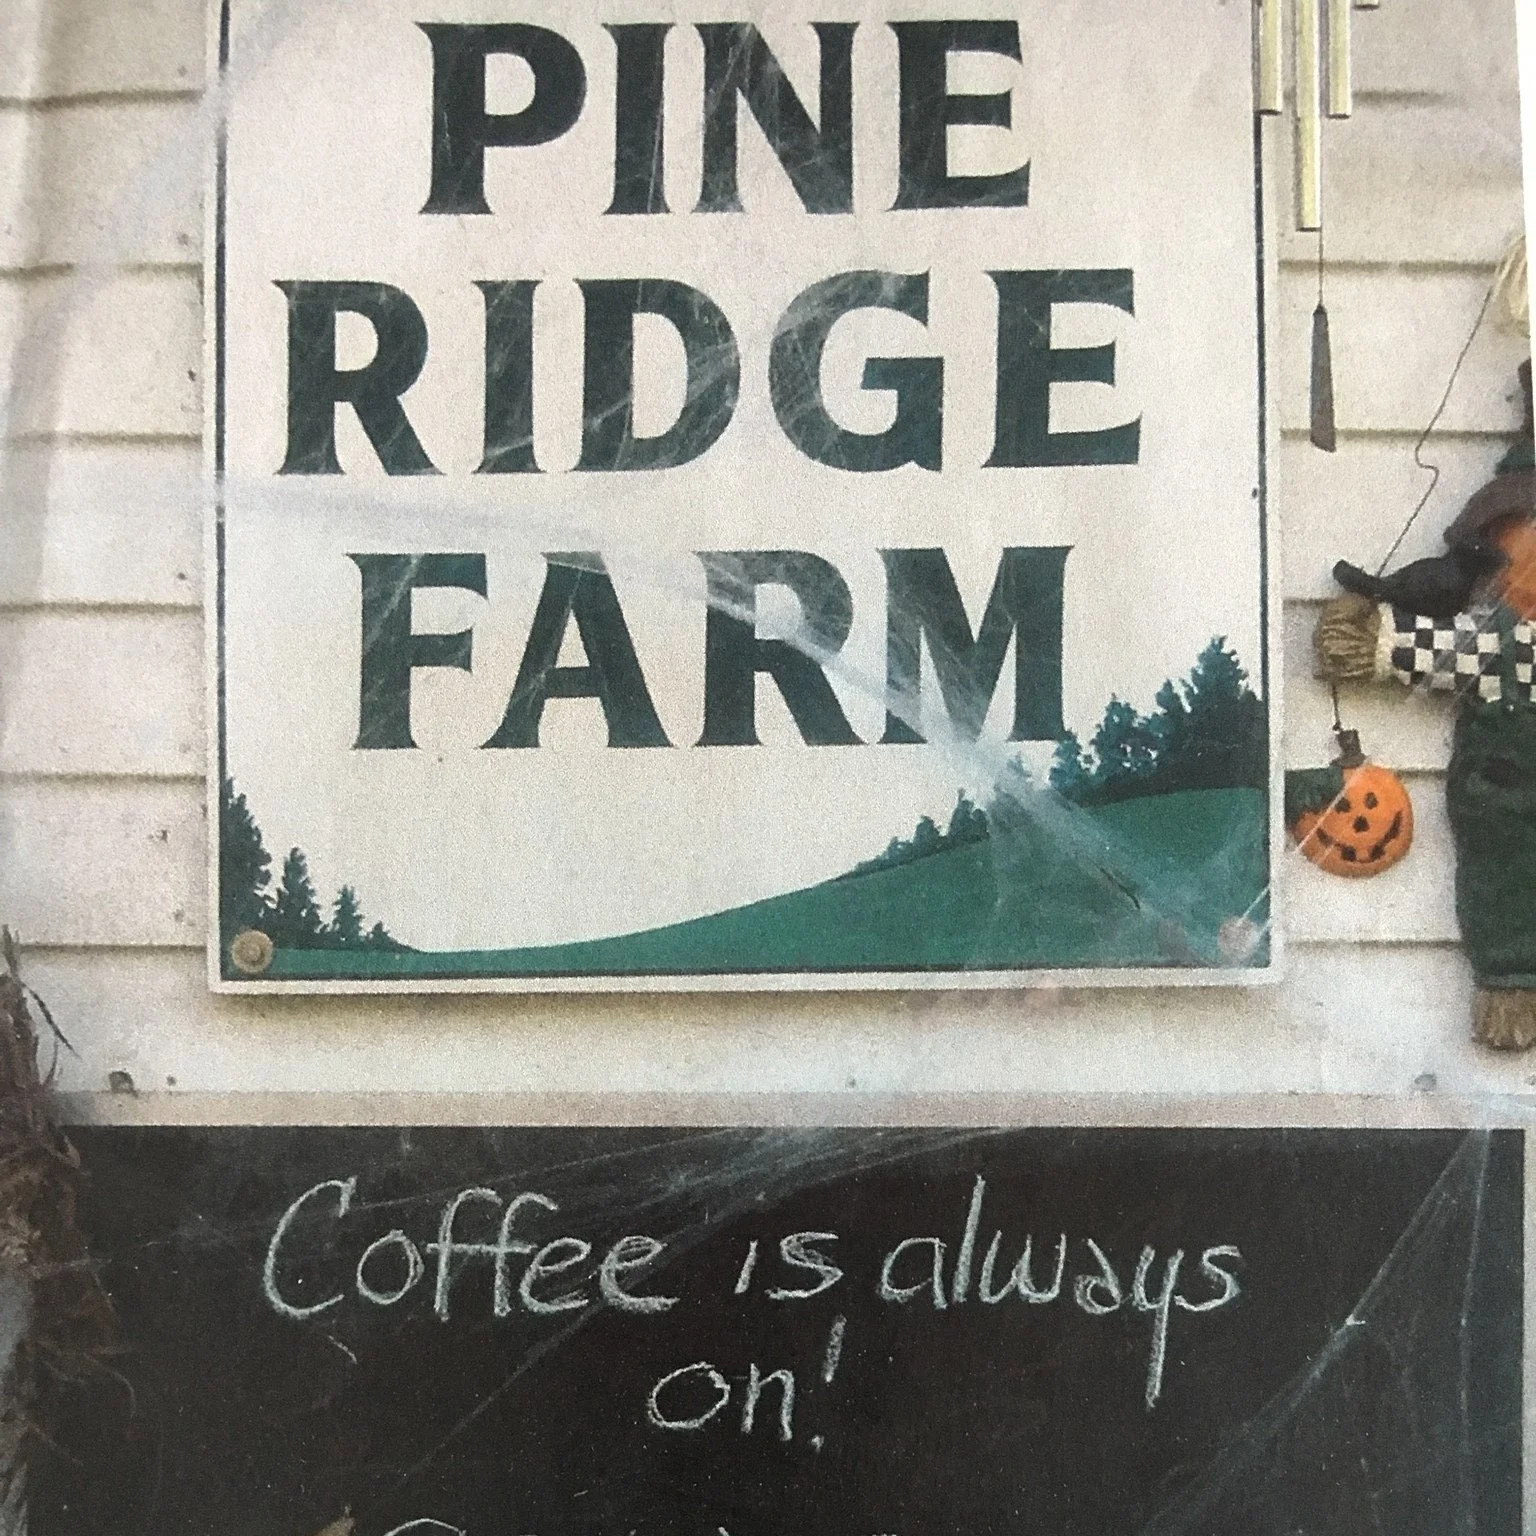 PINE
RIDGE
FARM
Coffee is always
on!